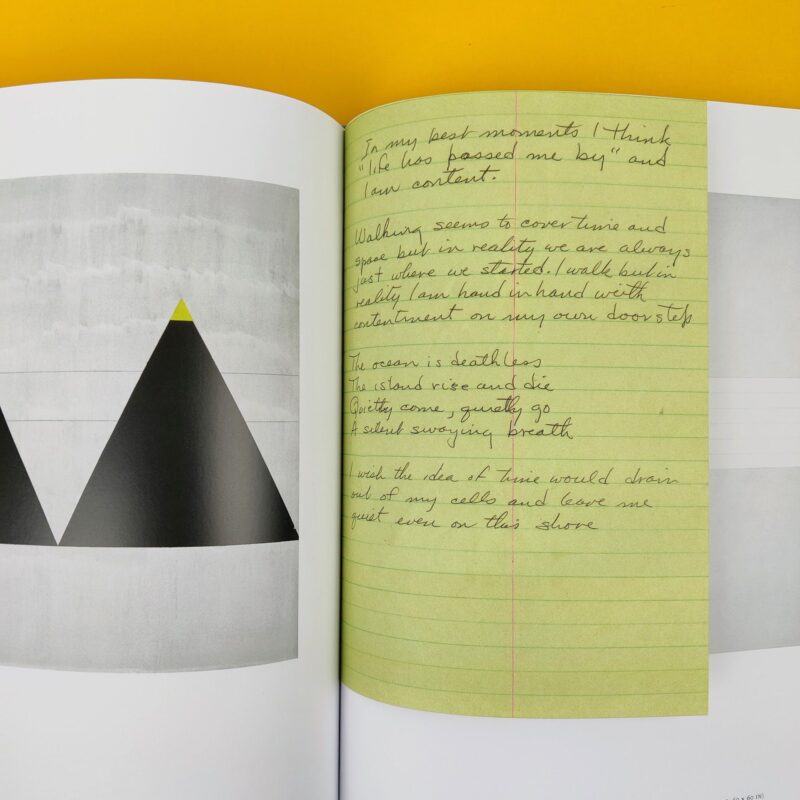 In my best moments I think
"life has passed me by" and
I am content.
Walking seems to cover time and
space but in reality we are always
just where we started. I walk but in
reality I am hand in hand with
contentment on my own door step
The ocean is deathless
The island rise and die
Quietly come, quietly go
A silent swaying breath
I wish the idea of time would drain
out of my cells and leave me
quiet even on this shore
60 x 60 in)